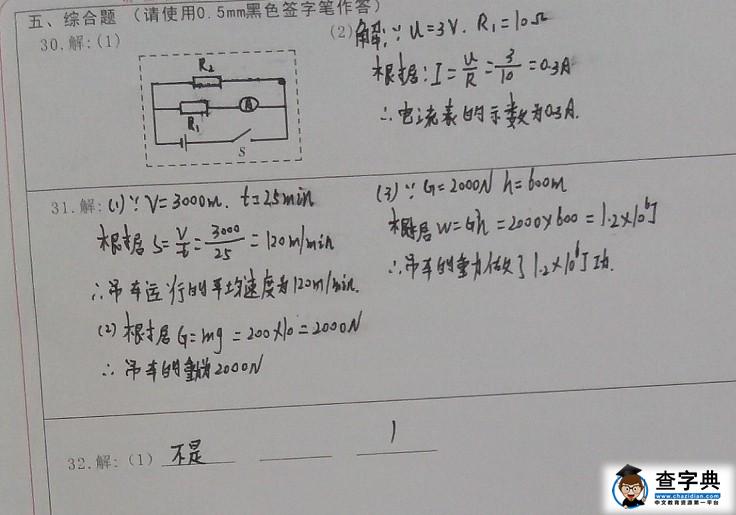 五、综合题 (请使用0.5mm黑色签字笔作答)
30.解:(1)
R2
A
R1
S
(2) 解:∵ U=3V. R1=10Ω
根据:I=U/R=3/10=0.3A
∴电流表的示数为0.3A.
31.解:(1)∵ V=3000m. t=25min
根据 S=V/t=3000/25=120m/min
∴吊车运行的平均速度为120m/min.
(2) 根据 G=mg=200×10=2000N
∴吊车的重为2000N
(3)∵ G=2000N h=600m
根据 W=Gh=2000×600=1.2×10⁶J
∴吊车的重力做了1.2×10⁶J功.
32.解:(1) 不是 1
查字典
www.chazidian.com
中文教育资源第一平台